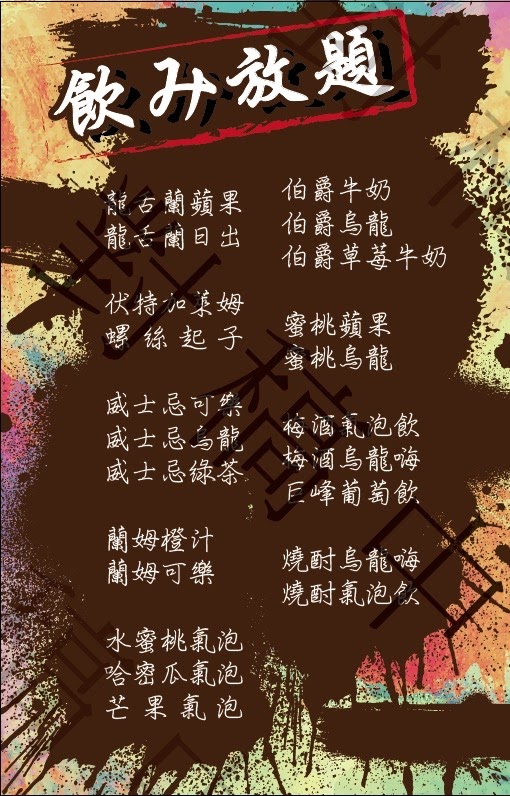 飲み放題
龍舌蘭蘋果
龍舌蘭日出
伏特加萊姆
螺絲起子
威士忌可樂
威士忌烏龍
威士忌綠茶
蘭姆橙汁
蘭姆可樂
水蜜桃氣泡
哈密瓜氣泡
芒果氣泡
伯爵牛奶
伯爵烏龍
伯爵草莓牛奶
蜜桃蘋果
蜜桃烏龍
梅酒氣泡飲
梅酒烏龍嗨
巨峰葡萄飲
燒酎烏龍嗨
燒酎氣泡飲